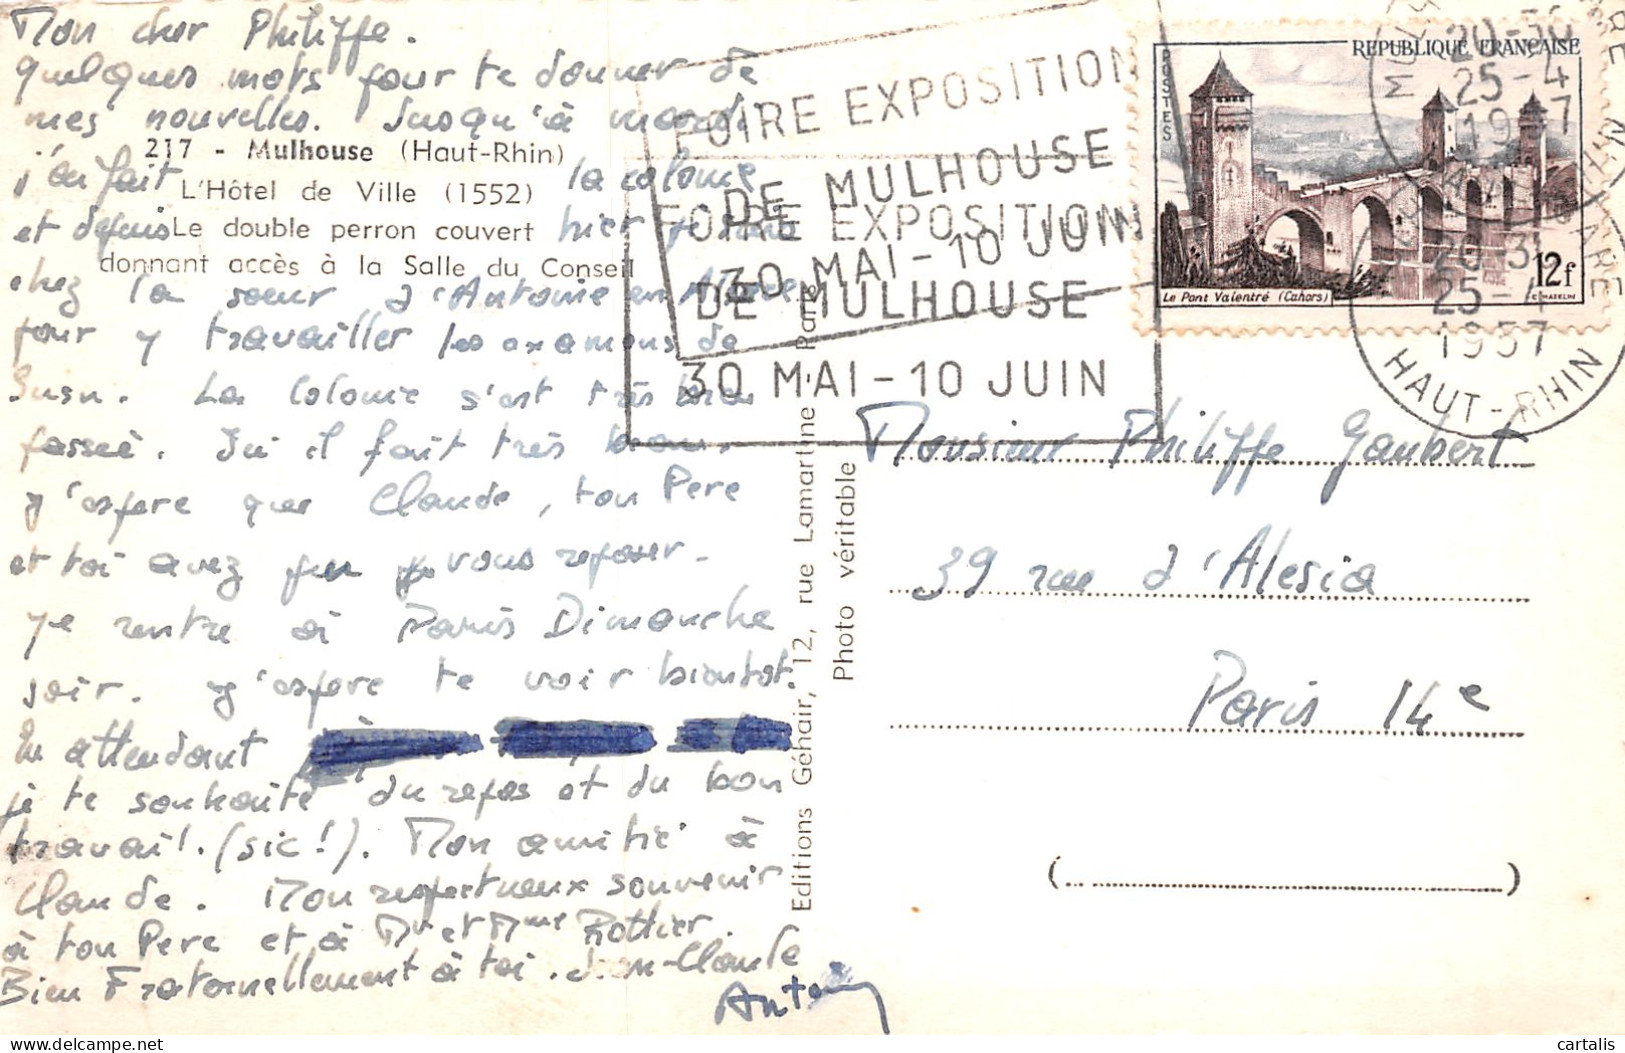 Mon cher Philippe.
Quelques mots pour te donner de
mes nouvelles. Jusqu'à mardi
217 - Mulhouse (Haut-Rhin)
j'ai fait la colonie
L'Hôtel de Ville (1552)
et depuis hier je suis
Le double perron couvert
donnant accès à la Salle du Conseil
chez la soeur d'Antoine en Alsace
pour y travailler les examens de
Juin. La colonie s'est très bien
passée. Ici il fait très beau.
J'espère que Claude, ton Père
et toi avez pu vous reposer.
Je rentre à Paris Dimanche
soir. J'espère te voir bientôt.
En attendant
je te souhaite du repos et du bon
travail. (sic!). Mon amitié à
Claude. Mon respectueux souvenir
à ton Père et à Mr et Mme Rottier.
Bien Fraternellement à toi. Jean-Claude
Antoine
Editions Géhair, 12, rue Lamartine Paris
Photo véritable
FOIRE EXPOSITION
DE MULHOUSE
30 MAI - 10 JUIN
FOIRE EXPOSITION
DE MULHOUSE
30 MAI - 10 JUIN
REPUBLIQUE FRANÇAISE
POSTES
Le Pont Valentré (Cahors)
12f
20-30
25-4
1957
20-3
25-4
1957
HAUT-RHIN
Monsieur Philippe Gaubert
39 rue d'Alesia
Paris 14e
(
)
cartalis